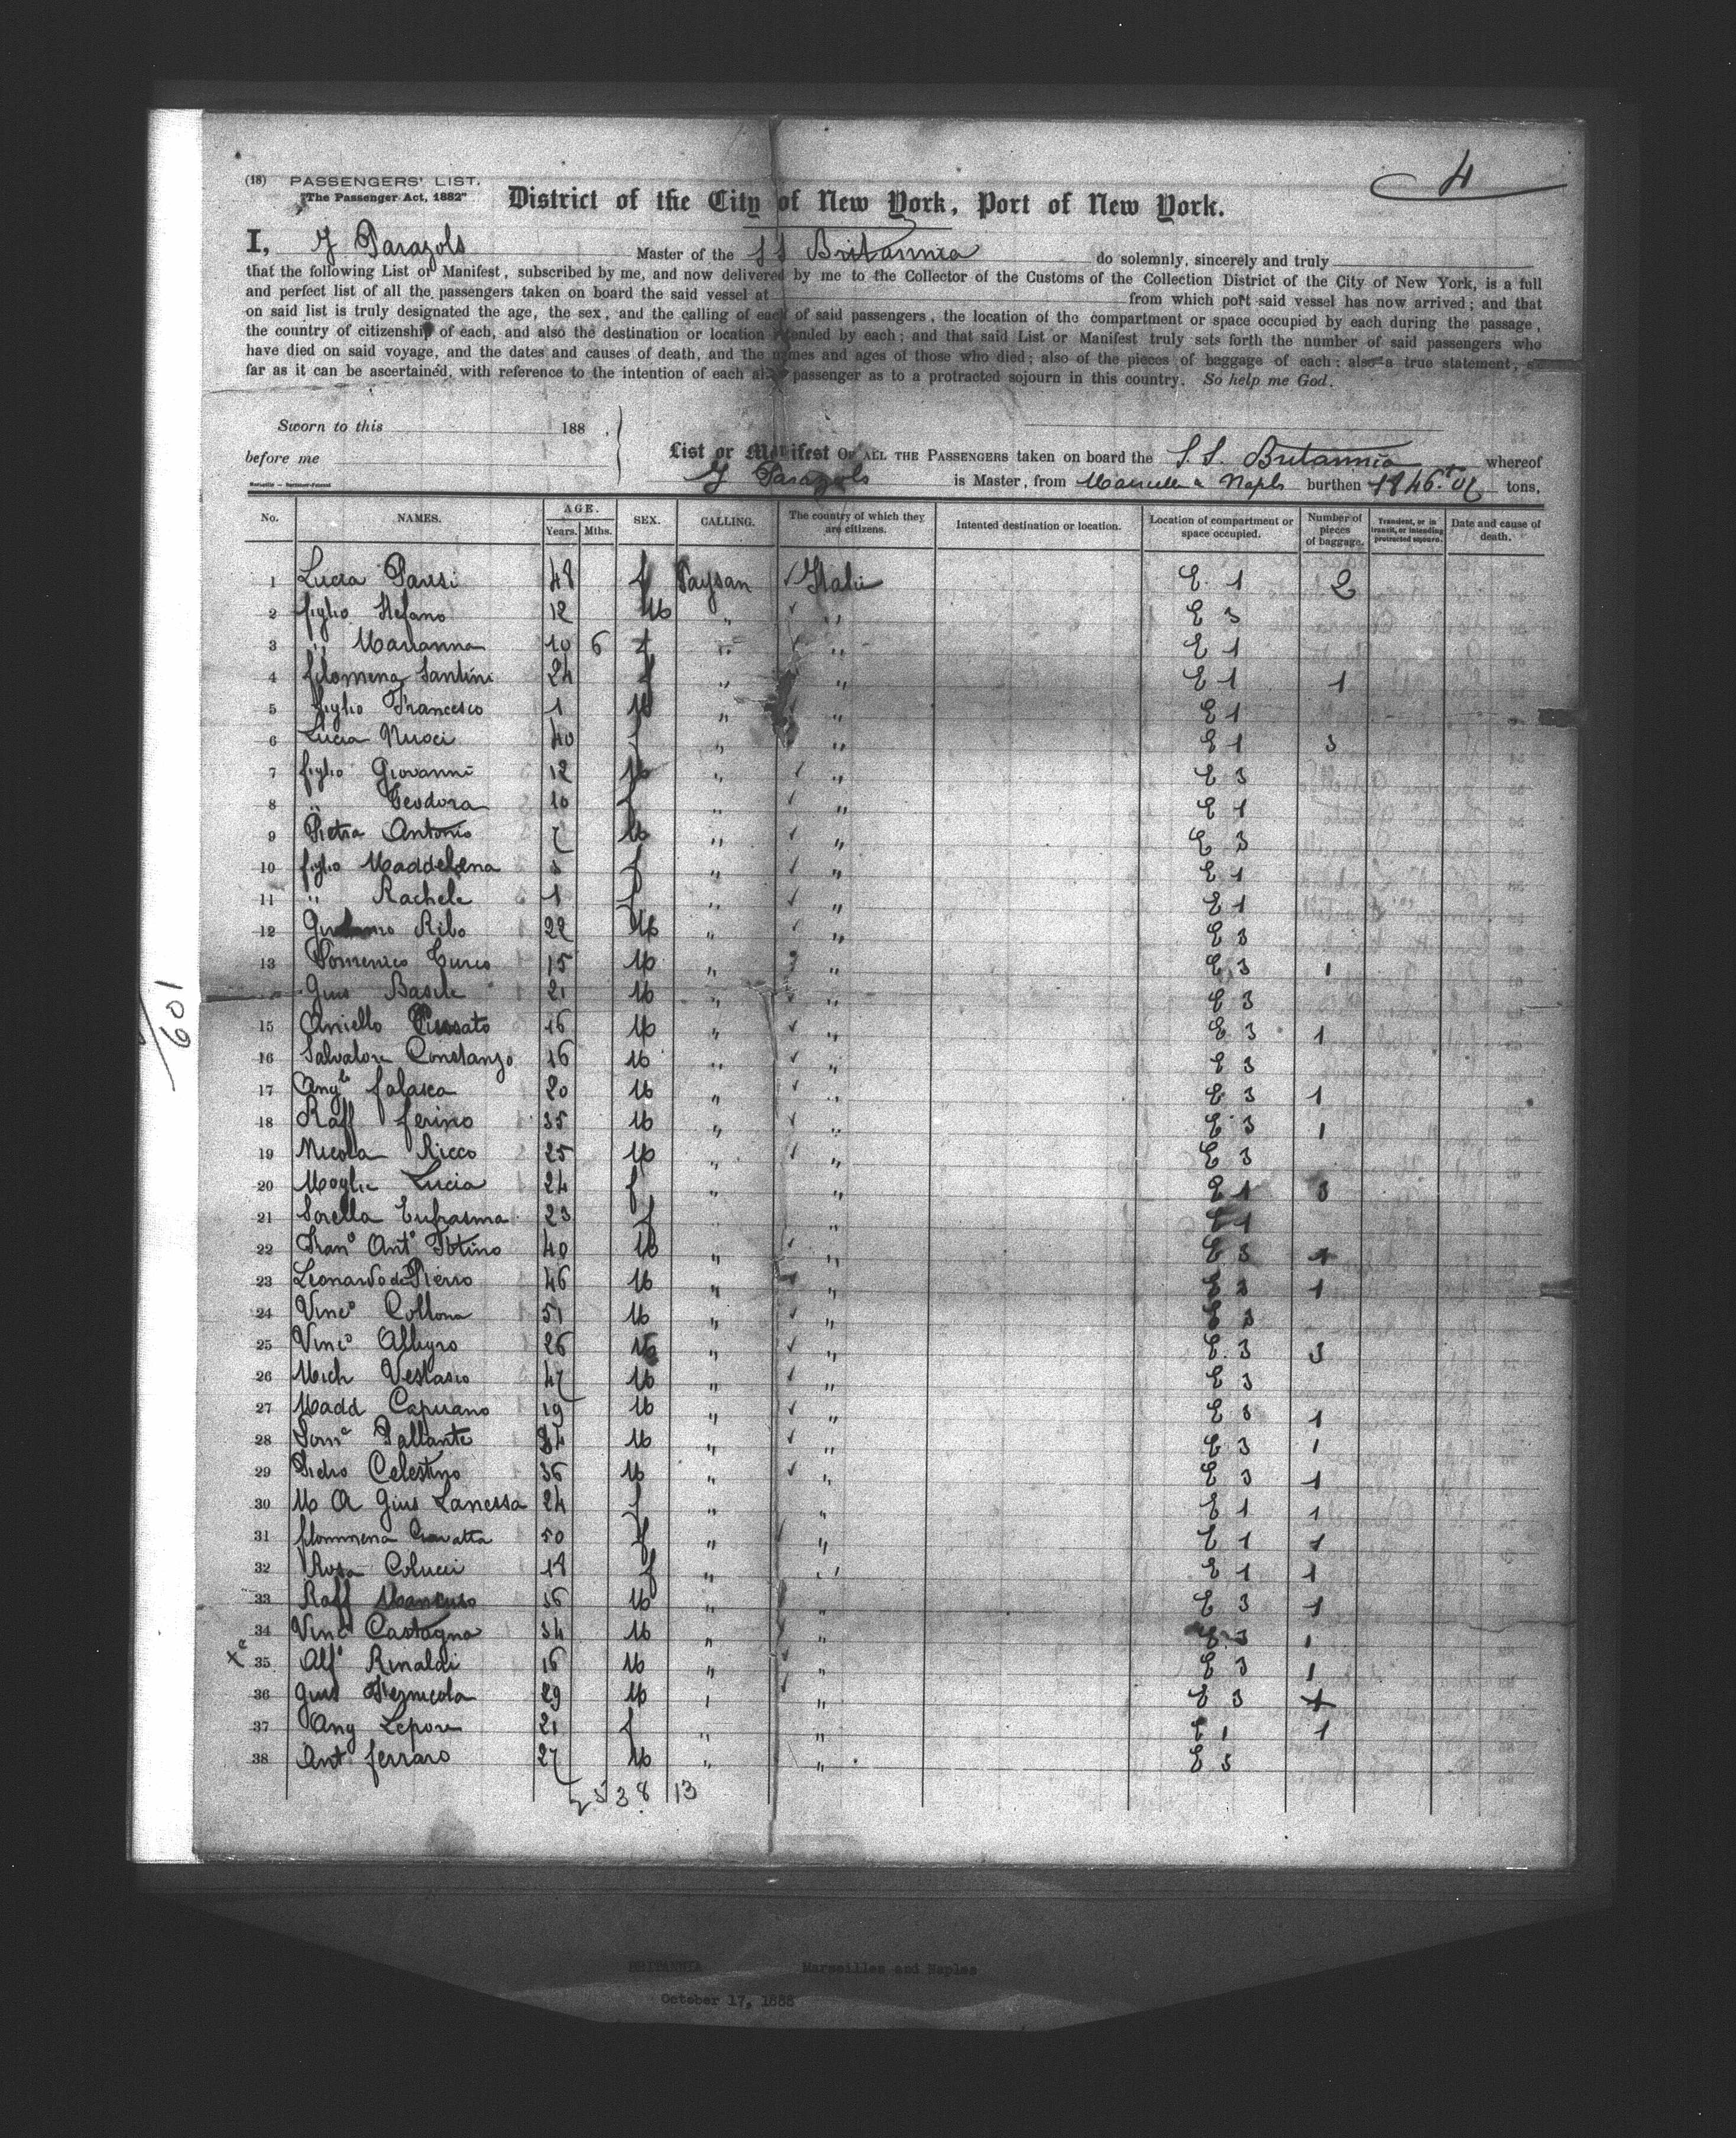 4
(18) PASSENGERS' LIST.
"The Passenger Act, 1882"
District of the City of New York, Port of New York.
I, J Parazols Master of the SS Britannia do solemnly, sincerely and truly
that the following List or Manifest, subscribed by me, and now delivered by me to the Collector of the Customs of the Collection District of the City of New York, is a full
and perfect list of all the passengers taken on board the said vessel at from which port said vessel has now arrived; and that
on said list is truly designated the age, the sex, and the calling of each of said passengers, the location of the compartment or space occupied by each during the passage,
the country of citizenship of each, and also the destination or location intended by each; and that said List or Manifest truly sets forth the number of said passengers who
have died on said voyage, and the dates and causes of death, and the names and ages of those who died; also of the pieces of baggage of each; also a true statement, so
far as it can be ascertained, with reference to the intention of each passenger as to a protracted sojourn in this country. So help me God.
Sworn to this 188 .
before me
List or Manifest OF ALL THE PASSENGERS taken on board the S.S. Britannia whereof
J Parazols is Master, from Marseille & Naples burthen tons,
No. NAMES. AGE. Years. Mths. SEX. CALLING. The country of which they are citizens. Intented destination or location. Location of compartment or space occupied. Number of pieces of baggage. Transient, or in transit, or intending protracted sojourn. Date and cause of death.
1 Lucia Parisi 48 f Paysan Italie E. 1 2
2 figlio Stefano 12 M " " E 3
3 " Marianna 10 6 f " " E 1
4 filomena Santini 24 f " " E 1 1
5 figlio Francesco 1 M " " E 1
6 Lucia Nusci 40 f " " E 1 3
7 figlio Giovanni 12 M " " E 3
8 " Teodora 10 f " " E 1
9 Pietra Antonio 7 M " " E 3
10 figlio Maddelena 3 f " " E 1
11 " Rachele 1 f " " E 1
12 Ribo 22 M " " E 3
13 Domenico Turco 15 M " " E 3 1
Gius Basile 21 M " " E 3
15 Aniello 16 M " " E 3 1
16 Salvatore Constanzo 16 M " " E 3
17 Anglo falasca 20 M " " E 3 1
18 Raff ferino 35 M " " E 3 1
19 Nicola Ricco 25 M " " E 3
20 Moglie Lucia 24 f " " E 1 3
21 Sorella Eufrasma 23 f " " E 1
22 Frano Anto Totino 40 M " " E 3 1
23 Leonardo di Pierro 46 M " " E 3 1
24 Vinco Collona 51 M " " E 3
25 Vinco Allegro 26 M " " E. 3 3
26 Mich Vestasio 47 M " " E 3
27 Madd Capuano 19 M " " E 3 1
28 Domo Pallante 34 M " " E 3 1
29 Pidro Celestino 36 M " " E 3 1
30 M A Gius Lanessa 24 f " " E 1 1
31 filommena 50 f " " E 1 1
32 Rosa Colucci 18 f " " E 1 1
33 Raff Mancuso 36 M " " E 3 1
34 Vinco Castagna 34 M " " E 3 1
35 Alfo Rinaldi 16 M " " E 3 1
36 Gius 29 M " " E 3 1
37 Ang Lepore 21 f " " E 1 1
38 Ant ferraro 27 M " " E 3
25 38 13
601
BRITANNIA Marseilles and Naples
October 17, 1888